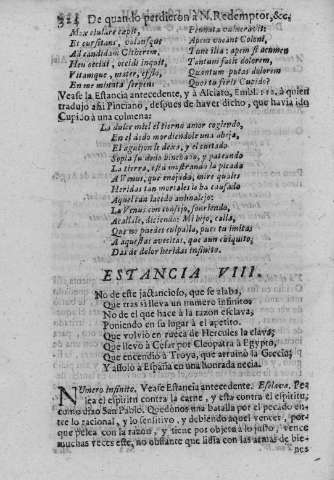 322 De quando perdieron à N. Redemptor, &c.
Mox clulare capit, Pennata vulneravit:
Et cursitans, volansque Apem vocant Coloni,
Ad candidam Citherem, Tunc illa: apem si acumen
Heu occidi, occidi inquit, Tantum facit dolorem,
Vitamque, mater, efflo, Quantum putas dolorem
En me minuta serpens Quoeris feris Cupido.
Vease la Estancia antecedente, y à Alciato, Embl. 112. à quien
traduxo assi Pinciano, despues de haver dicho, que havia ido
Cupido à una colmena:
La dulce miel el tierno amor cogiendo,
En el dedo mordiendole una abeja,
El aguijon le dexa, y el cuitado
Sopla su dedo hinchado, y pateando
La tierra, està mostrando la picada
A Venus, que enojada, mire quales
Heridas tan mortales le ha causado
Aquel tan lacedo animalejo:
La Venus con consejo, sonriendo,
Acallale, diciendo: Mi hijo, calla,
Que no puedes culpalla, pues tu imitas
A aquestas avecitas, que aun chiquito,
Das de dolor heridas infinito.
ESTANCIA VIII.
No de este jactancioso, que se alaba,
Que tras sì lleva un numero infinito,
No de el que hace à la razon esclava,
Poniendo en su lugar à el apetito.
Que volviò en rueca de Hercules la clava;
Que llevò à Cesar por Cleopatra à Egypto,
Que encendiò à Troya, que arruinò la Grecia;
Y assolò à España en una honrada necia.
NUmero infinito. Vease Estancia antecedente. Esclava. Pe-
lea el espiritu contra la carne, y esta contra el espiritu,
como dixo San Pablo. Quedònos una batalla por el pecado en-
tre lo racional, y lo sensitivo, y debiendo aquel vencer, por-
que pelea con la razon, y tiene por objeto à lo justo, vence
muchas veces este, no obstante que lidia con las armas de bie-
nes